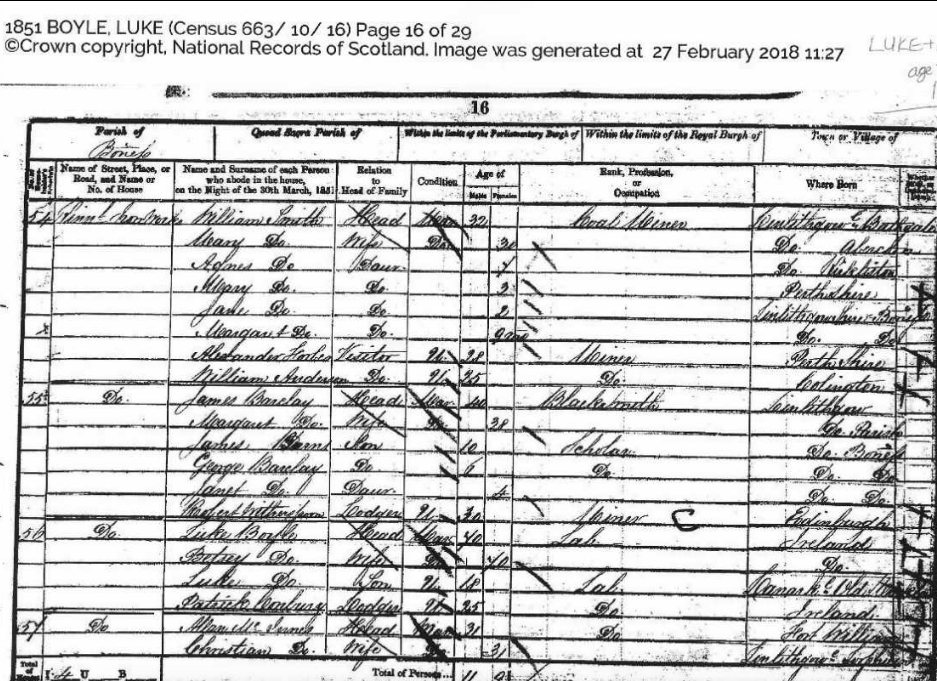 1851 BOYLE, LUKE (Census 663/ 10/ 16) Page 16 of 29
©Crown copyright, National Records of Scotland. Image was generated at 27 February 2018 11:27
LUKE+
age
16
Parish of Quoad Sacra Parish of Within the limits of the Parliamentary Burgh of Within the limits of the Royal Burgh of Town or Village of
Boness
Name of Street, Place, or Road, and Name or No. of House Name and Surname of each Person who abode in the house, on the Night of the 30th March, 1851 Relation to Head of Family Condition Age of Males Females Rank, Profession, or Occupation Where Born
54 William Smith Head Mar 32 Coal Miner Linlithgow Bathgate
Mary Do. Wife Do. 30 Do.
Agnes Do Daur 7 Do.
Mary Do. Do. Perthshire
Jane Do. Do. 2 Linlithgowshire Boness
Margaret Do. Do. Do. Do
Alexander Visitor U. 28 Miner Perthshire
William Anderson Do. U. 25 Do.
55 Do. James Barclay Head Mar 40 Blacksmith Linlithgow
Margaret Do. Wife Do. 38 Do. Parish
James Son 10 Scholar Do. Boness
George Barclay Do. 6 Do. Do. Do
Janet Do. Daur 4 Do. Do.
Robert Witherspoon Lodger U. 30 Miner C Edinburgh
56 Do. Luke Boyle Head Mar 40 Lab. Ireland
Betsey Do. Wife Do. 40 Do.
Luke Do Son U. 18 Lab. Lanark Old
Patrick Lodger U. 25 Do. Ireland
57 Do Allan Mc Innes Head Mar 31 Do. Fort William
Christian Do. Wife Do. 31
Total of Houses I. 4 U B Total of Persons... 11